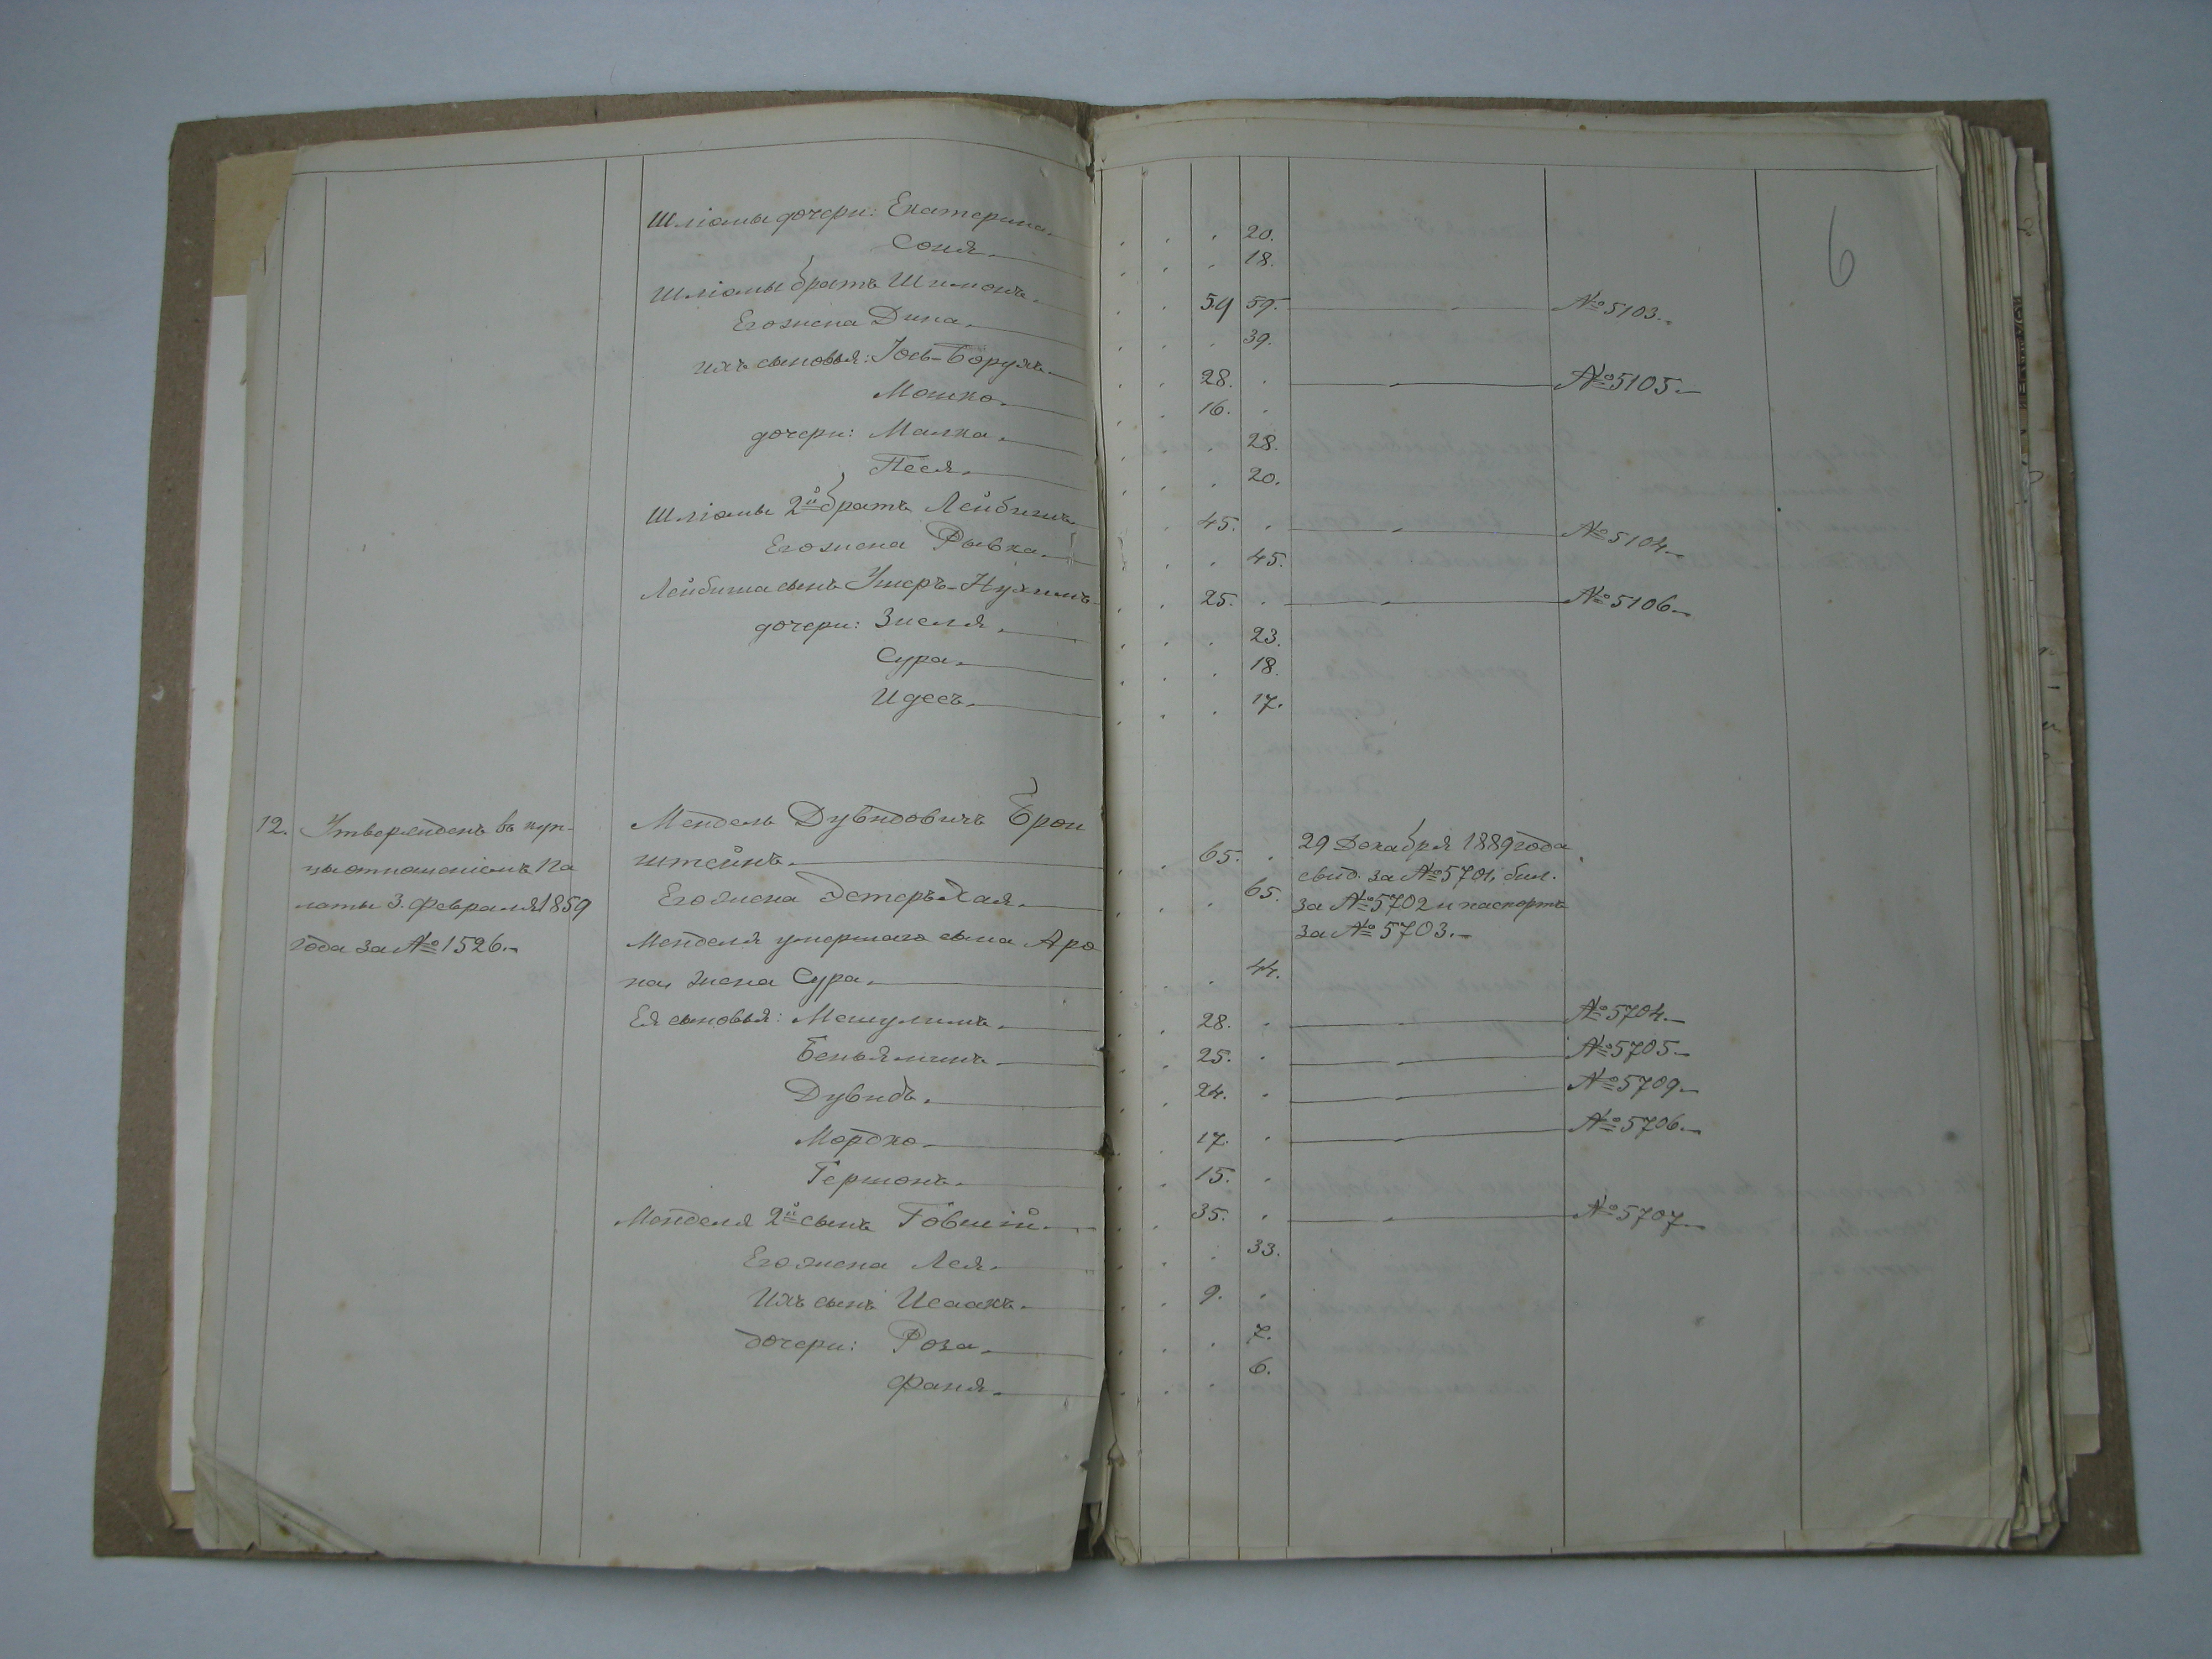 6
Шліомы дочери: Екатерина. 20.
Соня. 18.
Шліомы братъ Шимонъ. 59 59. № 5103.
Его жена Дина. 39.
ихъ сыновья: Іось-Борухъ. 28. № 5105.
Мошко. 16.
дочери: Малка. 28.
Песя. 20.
Шліомы 2й братъ Лейбишъ 45. № 5104.
Его жена Рывка. 45.
Лейбиша сынъ Ушеръ-Нухимъ 25. № 5106.
дочери: Зисля. 23.
Сура. 18.
Идесъ. 17.
12. Утвержденъ въ куп- Мендель Дувидовичъ Брон
цы отношеніемъ Па штейнъ. 65. 29 Декабря 1889 года
латы 3. Февраля 1859 Его жена Эстеръ-Хая. 65. свид. за № 5701, бил.
года за № 1526. за № 5702 и паспортъ
Менделя умершаго сына Аро за № 5703.
на, жена Сура. 44.
Ея сыновья: Мешулимъ. 28. № 5704.
Беньяминъ. 25. № 5705.
Дувидъ. 24. № 5709.
Мордко. 17. № 5706.
Гершонъ. 15.
Менделя 2й сынъ Говшій. 35. № 5707
Его жена Лея. 33.
Ихъ сынъ Исаакъ. 9.
дочери: Роза. 7.
Фаня. 6.